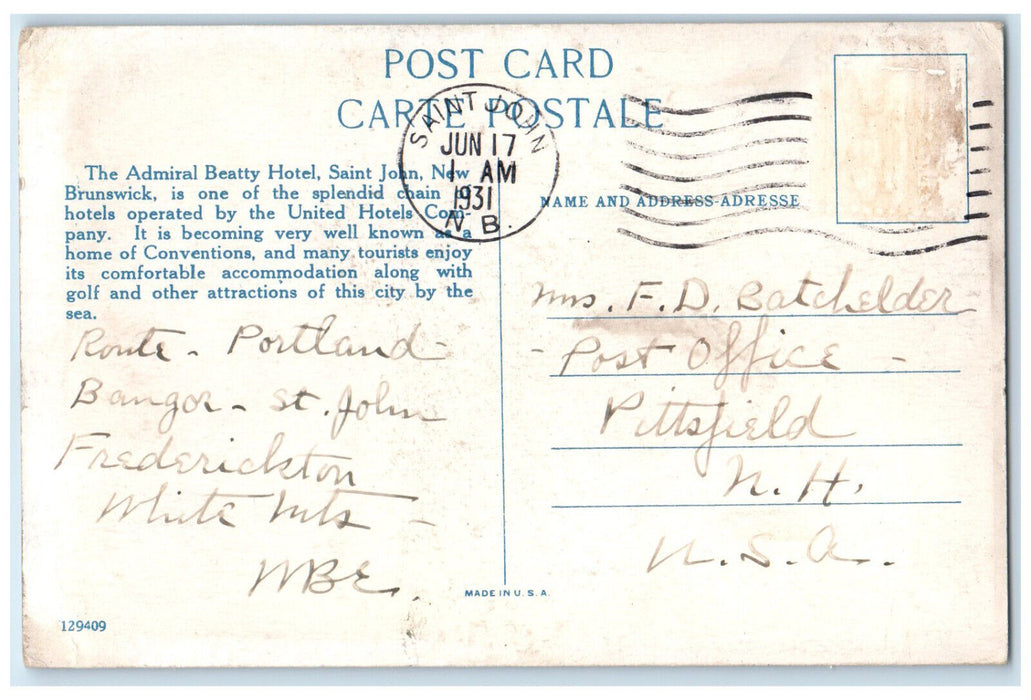 POST CARD
CARTE POSTALE
SAINT JOHN
JUN 17
1 AM
1931
N B.
The Admiral Beatty Hotel, Saint John, New
Brunswick, is one of the splendid chain of
hotels operated by the United Hotels Com-
pany. It is becoming very well known as a
home of Conventions, and many tourists enjoy
its comfortable accommodation along with
golf and other attractions of this city by the
sea.
Route - Portland -
Bangor - St. John
Frederickton
White Mts -
MBE.
NAME AND ADDRESS-ADRESSE
Mrs. F. D. Batchelder
- Post Office -
Pittsfield
N. H.
U. S. A.
MADE IN U. S. A.
129409